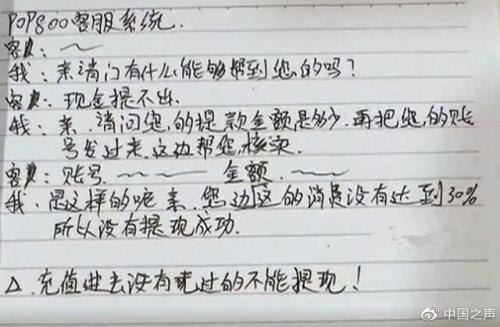 POP800客服系统.
客户: ~
我: 亲请问有什么能够帮到您的吗?
客户: 现金提不出.
我: 亲.请问您.的提款金额是多少.再把您.的账
号发过来.这边帮您.核实.
客户: 账号~ —— —— 金额.~
我: 是这样的呢 亲.您边这的消费没有达到30%
所以没有提现成功.
△.充值进去没有玩过的不能提现!
@中国之声